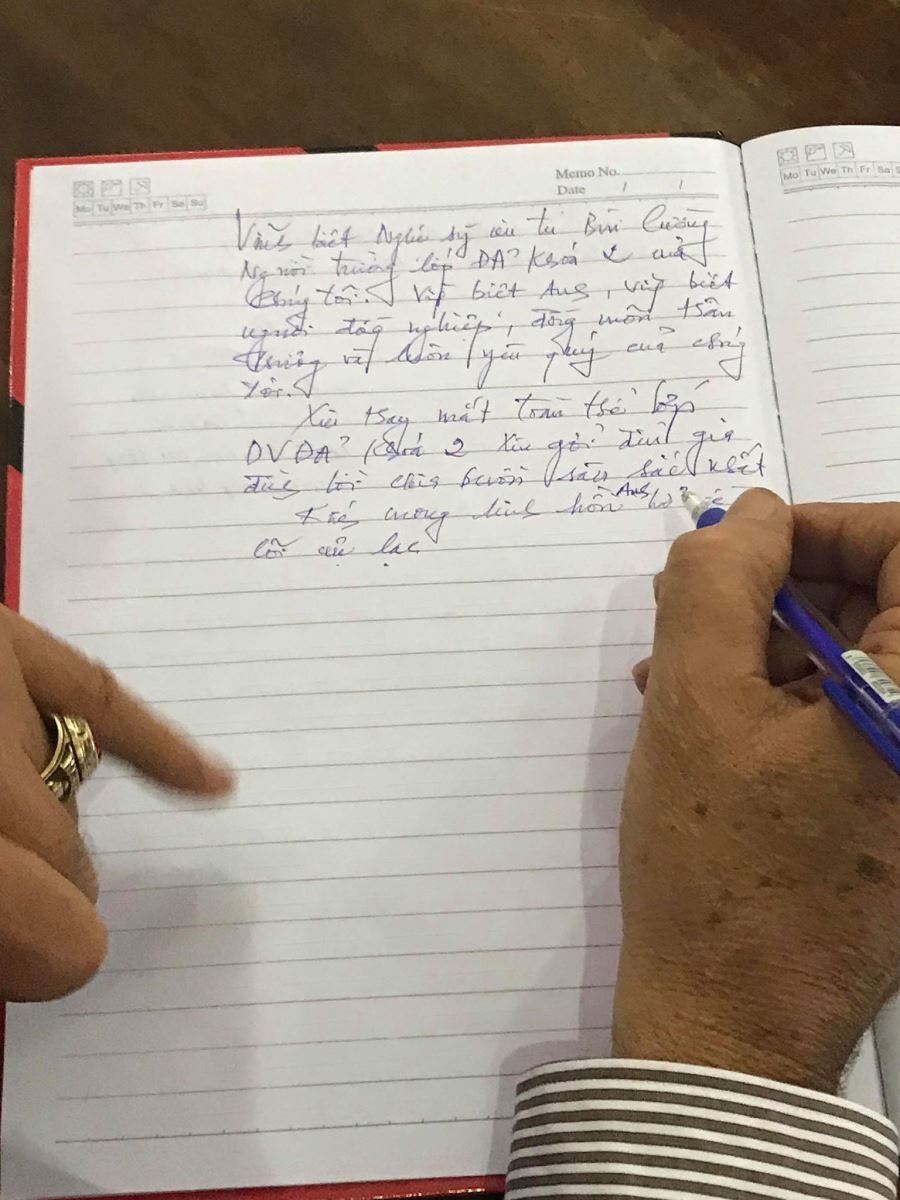 Memo No.
Date / /
Mo Tu We Th Fr Sa Su
Mo Tu We Th Fr Sa S
Vĩnh biệt Nghệ sỹ ưu tú Bùi Cường
Người trưởng lớp ĐA² Khoá 2 của
chúng tôi. Vĩnh biệt Anh, vĩnh biệt
người đồng nghiệp, đồng môn thân
thương và luôn yêu quý của chúng
tôi.
Xin thay mặt toàn thể lớp
DVĐA² Khoá 2 xin gởi đến gia
đình lời chia buồn sâu sắc nhất
Kính mong linh hồn Anh
cõi cực lạc